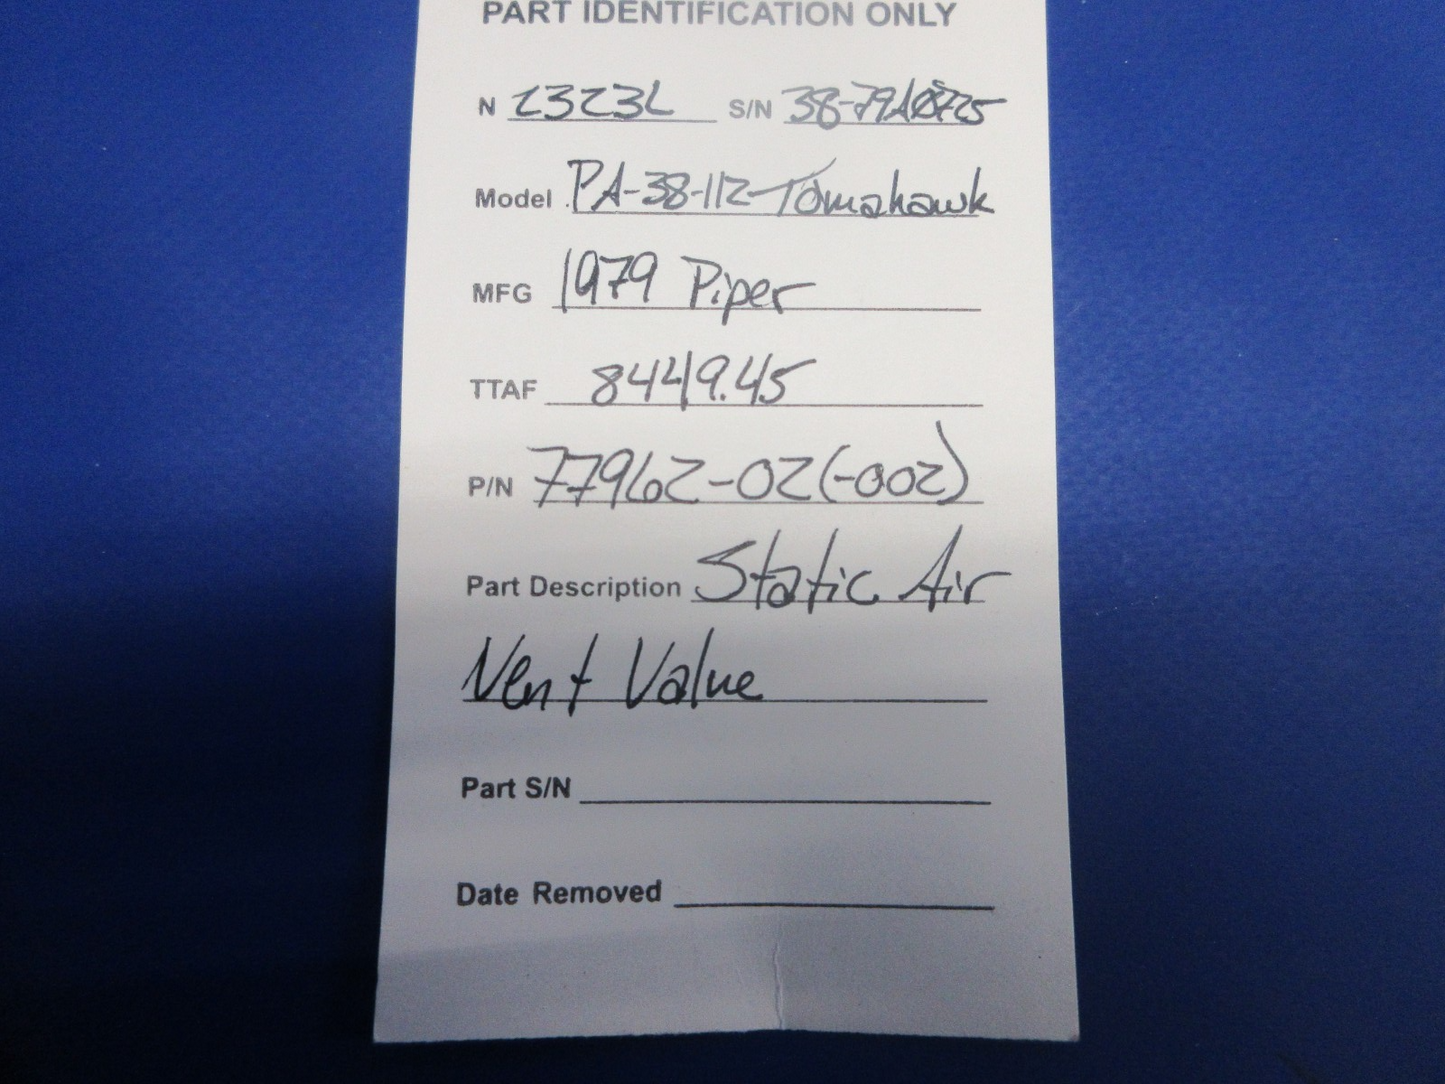 PART IDENTIFICATION ONLY
N 2323L S/N 38-79A0725
Model PA-38-112-Tomahawk
MFG 1979 Piper
TTAF 8449.45
P/N 77962-02(-002)
Part Description Static Air
Vent Valve
Part S/N
Date Removed